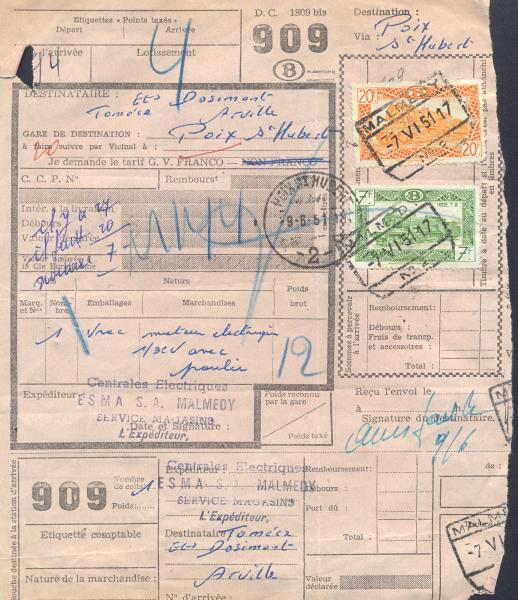 D. C. 1809 bis
Etiquettes « Points taxés »
Départ Arrivée
909
B
Destination :
Poix
Via :
St Hubert
l'arrivée Lotissement
4
DESTINATAIRE : Ets Dosimont
Toméca Arville
GARE DE DESTINATION :
à faire suivre par Vicinal à : Poix St Hubert
Je demande le tarif G. V. FRANCO - NON FRANCO
C. C. P. No Remboursť
Int. à la livraison
Débours
Valeur assurée
la Cie Européenne
M144
20
7
Nature
Marq. et Nos Nombre Emballages Marchandises Poids brut
1 Vrac moteur electrique
1/3 CV avec
poulie
12
Centrales Electriques
ESMA S. A. MALMEDY
SERVICE MAGASINS
L'Expéditeur,
Expéditeur
Date et Signature :
Poids reconnu par la gare
Poids taxé
20F
20F
MALMEDY
-7 VI 51 17
No 2
7F
7F
B
-7 VI 51 17
-9-6-51
-2-
Sommes à percevoir à l'arrivée
Remboursement :
Débours :
Frais de transp. et accessoires :
Total :
Timbre à date au départ si en timbres
Reçu l'envoi le
Signature du destinataire.
9/6
909
Nombre de colis 1
Poids:
Expéditeur
Centrales Electriques
ESMA S. A. MALMEDY
SERVICE MAGASINS
L'Expéditeur,
Destinataire Toméca
Ets Dosimont
Arville
Etiquette comptable
Nature de la marchandise :
N° d'arrivée
Remboursement:
Débours :
Port dû :
Total :
Valeur déclarée
de :
-7 VI 51
Souche destinée à la station d'arrivée